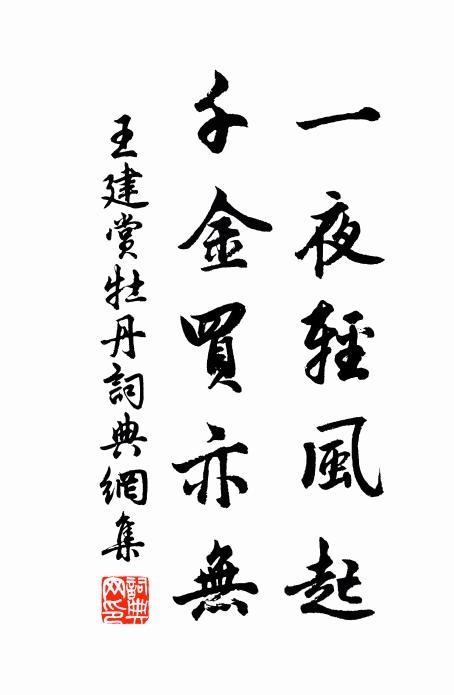 一夜輕風起
千金買亦無
王建賞牡丹詞典網集
詞典
网印